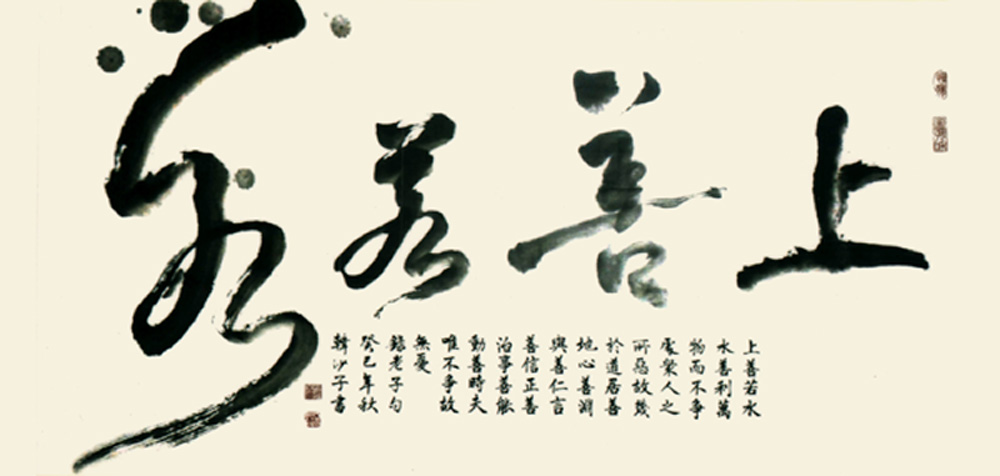 上善若水
上善若水
水善利萬
物而不爭
處眾人之
所惡故幾
於道居善
地心善淵
與善仁言
善信正善
治事善能
動善時夫
唯不爭故
無憂
錄老子句
癸巳年秋
韓沙子書